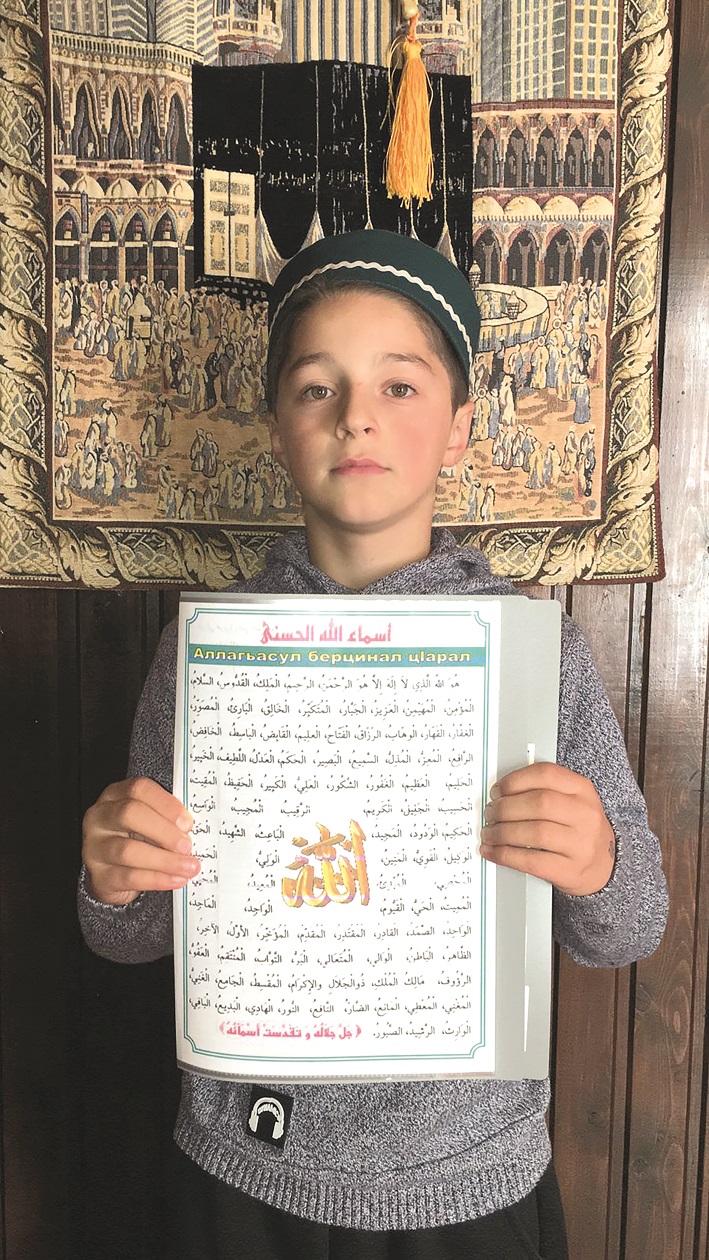 أسماء الله الحسنى
Аллагьасул берцинал цӀарал
هُوَ اللهُ الَّذِي لاَ إِلَهَ إِلاَّ هُوَ الرَّحْمَنُ، الرَّحِيمُ، الْمَلِكُ، الْقُدُّوسُ، السَّلاَمُ،
الْمُؤْمِنُ، الْمُهَيْمِنُ، الْعَزِيزُ، الْجَبَّارُ، الْمُتَكَبِّرُ، الْخَالِقُ، الْبَارِئُ، الْمُصَوِّرُ،
الْغَفَّارُ، الْقَهَّارُ، الْوَهَّابُ، الرَّزَّاقُ، الْفَتَّاحُ، الْعَلِيمُ، الْقَابِضُ، الْبَاسِطُ، الْخَافِضُ،
الرَّافِعُ، الْمُعِزُّ، الْمُذِلُّ، السَّمِيعُ، الْبَصِيرُ، الْحَكَمُ، الْعَدْلُ، اللَّطِيفُ، الْخَبِيرُ،
الْحَلِيمُ، الْعَظِيمُ، الْغَفُورُ، الشَّكُورُ، الْعَلِيُّ، الْكَبِيرُ، الْحَفِيظُ، الْمُقِيتُ،
الْحَسِيبُ، الْجَلِيلُ، الْكَرِيمُ، الرَّقِيبُ، الْمُجِيبُ، الْوَاسِعُ،
الْحَكِيمُ، الْوَدُودُ، الْمَجِيدُ، الْبَاعِثُ، الشَّهِيدُ، الْحَقُّ
الْوَكِيلُ، الْقَوِيُّ، الْمَتِينُ، الْوَلِيُّ، الْحَمِيدُ
الله
الْمُحْصِي، الْمُبْدِئُ، الْمُعِيدُ،
الْمُمِيتُ، الْحَيُّ، الْقَيُّومُ، الْوَاجِدُ، الْمَاجِدُ،
الْوَاحِدُ، الصَّمَدُ، الْقَادِرُ، الْمُقْتَدِرُ، الْمُقَدِّمُ، الْمُؤَخِّرُ، الأَوَّلُ، الآخِرُ،
الظَّاهِرُ، الْبَاطِنُ، الْوَالِي، الْمُتَعَالِي، الْبَرُّ، التَّوَّابُ، الْمُنْتَقِمُ، الْعَفُوُّ،
الرَّؤُوفُ، مَالِكُ الْمُلْكِ، ذُوالْجَلاَلِ وَالإِكْرَامِ، الْمُقْسِطُ، الْجَامِعُ، الْغَنِيُّ،
الْمُغْنِي، الْمُعْطِي، الْمَانِعُ، الضَّارُّ، النَّافِعُ، النُّورُ، الْهَادِي، الْبَدِيعُ، الْبَاقِي،
الْوَارِثُ، الرَّشِيدُ، الصَّبُورُ. ﴿جَلَّ جَلاَلُهُ وَ تَقَدَّسَتْ أَسْمَائُهُ﴾